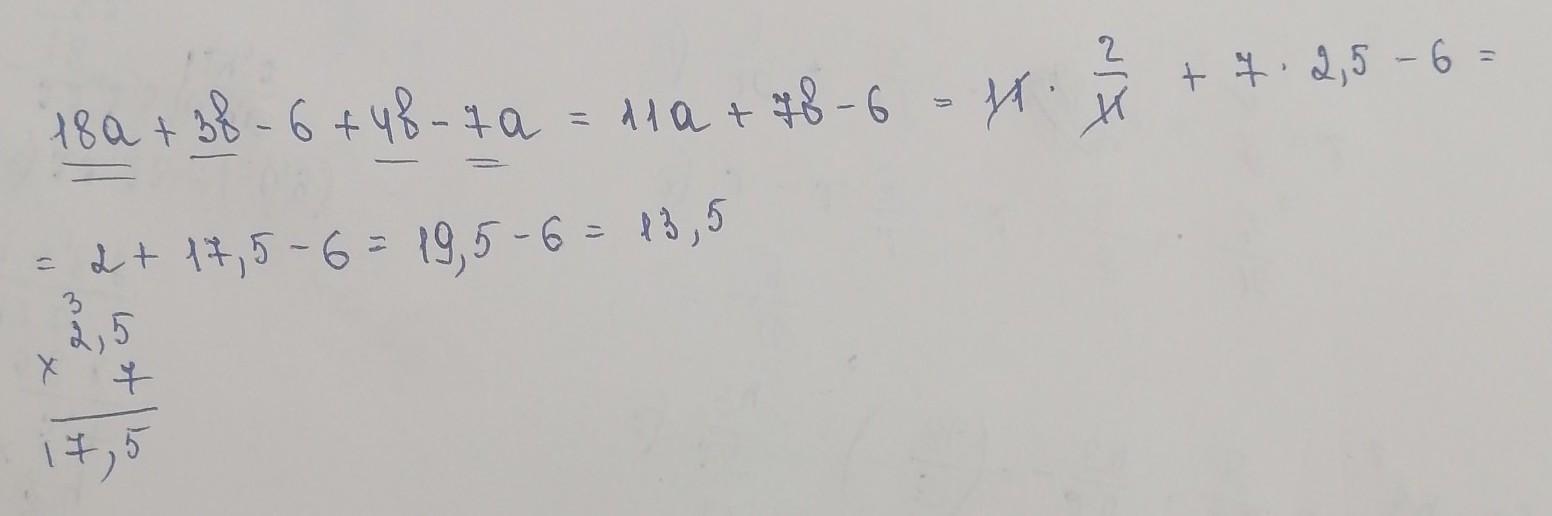 18a + 3b - 6 + 4b - 7a = 11a + 7b - 6 = 11 · 2/11 + 7 · 2,5 - 6 =
= 2 + 17,5 - 6 = 19,5 - 6 = 13,5
3
2,5
× 7
17,5